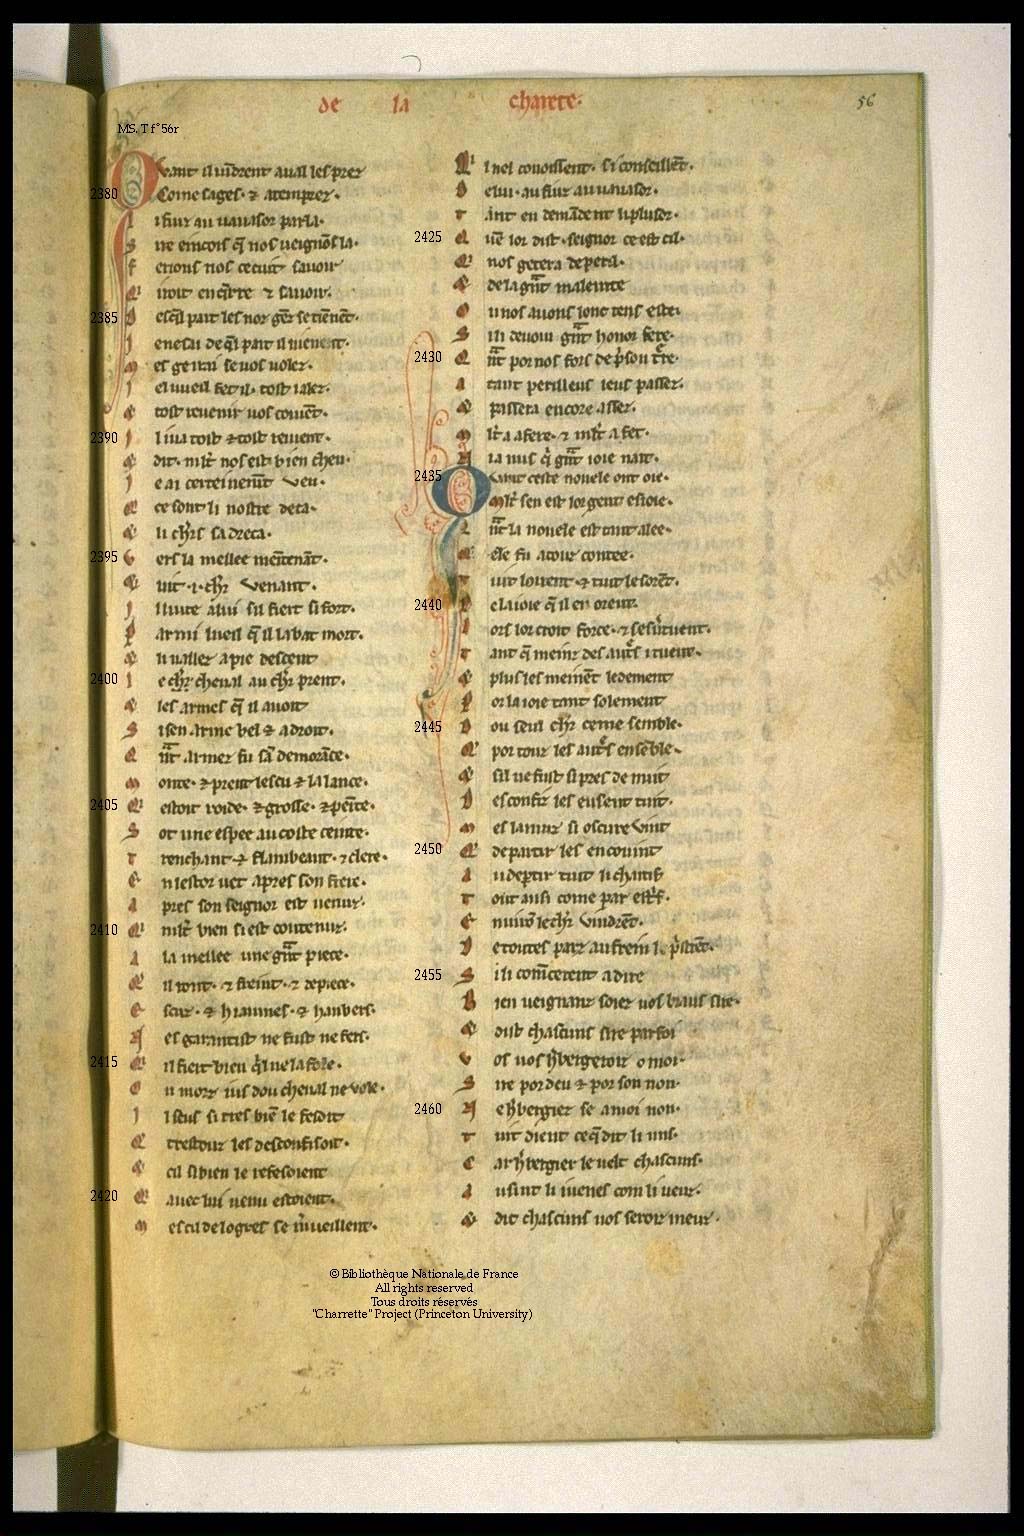 de la charrete.
56
MS. T f°56r
Quant il vindrent aual les prez
2380 Come sages. ⁊ atemprez.
l i fiuz au uauasor parla.
s ire encois q̄ nos ueignōs la.
f erions nos ce cuit sauoir
⁊ uoir enq̄rre ⁊ sauoir.
2385 d es q̄l part les noz gēz se tienēt.
i e ne sai de q̄l part il uienent.
m es ge irai se uos uolez.
i el uueil fet il. tost i alez.
⁊ tost reuenir uos couiēt.
2390 i l i ua tost ⁊ tost reuient.
⁊ dit. mlt nos est bien cheu.
i e ai certeinement veu.
q ce sont li nostre deca.
⁊ li chrs sadreca.
2395 v ers la mellee meītenāt.
⁊ uit .i. chr venant.
i l iuite a lui sil fiert si fort.
p armi lueil q̄ il labat mort.
⁊ li uallez a pie descent
2400 l e chr cheual au chr prent.
⁊ les armes q̄ il auoit
s i sen arme bel ⁊ adroit.
q̄nt armez fu sā demorāce.
m onte. ⁊ prent lescu ⁊ la lance.
2405 q̄ estoit roide. ⁊ grosse. ⁊ peīte.
s ot une espee au coste ceinte.
t renchant ⁊ flambeant. ⁊ clere.
e n lestor uet apres son frere.
a pres son seignor est uenuz.
2410 q̄ mlt bien si est contenuz.
a la mellee une gnt piece.
q̄ il ront. ⁊ freint. ⁊ depiece.
e scuz. ⁊ hiaumes. ⁊ haubers.
n es garantist ne fust ne fers.
2415 q̄ il fiert bien q̄l ne lafole.
o u morz ius dou cheual ne vole.
i l seus si tres biē le fesoit
q trestouz les desconfisoit.
⁊ cil si bien le refesoient
2420 q̄ auec lui uenu estoient.
m es cil de logres se mueillent.
q̄ l nel conoissent. si conseillēt.
d e lui. au fiuz au uauasor.
t ant en demādent li plusor.
2425 q̄ ūe lor dist. seignor ce est cil.
q̄ nos getera de peril.
⁊ de la gnt maleurte
o u nos auons lonc tens este.
s i li deuom gnt honor fere.
2430 q̄nt por nos fors de pson tre.
a tant perilleus leus passez.
⁊ passera encore assez.
m lt a a fere. ⁊ mlt a fet.
n ia nus q̄ gnt ioie nait.
2435 Quant ceste nouele ont oie.
mlt sen est lor gent esioie.
q̄nt la nouele est tant alee.
q̄ ele fu a touz contee.
t uit loirent ⁊ tuit le sorēt.
2440 d e la ioie q̄ il en orent.
l ors lor croit force. ⁊ sesuertuent.
t ant q̄ meinz des autrs i tuent.
⁊ plus les meinēt ledement
p or la ioie tant solement
2445 d ou seul chr ce me semble.
q̄ por touz les autrs ensēble.
⁊ sil ne fust si pres de nuit
d esconfiz les eusent tuit.
m es la nuiz si oscure vint
2450 q̄ departir les en couint
a u departir tuit li chaitif
t out ausi come par estrif.
e nuirō le chr vindrēt.
d e toutes parz au frein le pstrēt.
2455 s i li comēcerent a dire
b ien ueignanz soiez uos biaus sire.
⁊ dist chascuns sire par foi
v os uos hbergeroiz o moi.
s ire por deu ⁊ por son non.
2460 n e hbergiez se a moi non.
t uit dient ce q̄ dit li uns.
c ar hbergier le uelt chascuns.
a usint li iuenes com li ueuz.
⁊ dit chascuns uos seroiz mieuz.
© Bibliothèque Nationale de France
All rights reserved
Tous droits réservés
"Charrette" Project (Princeton University)